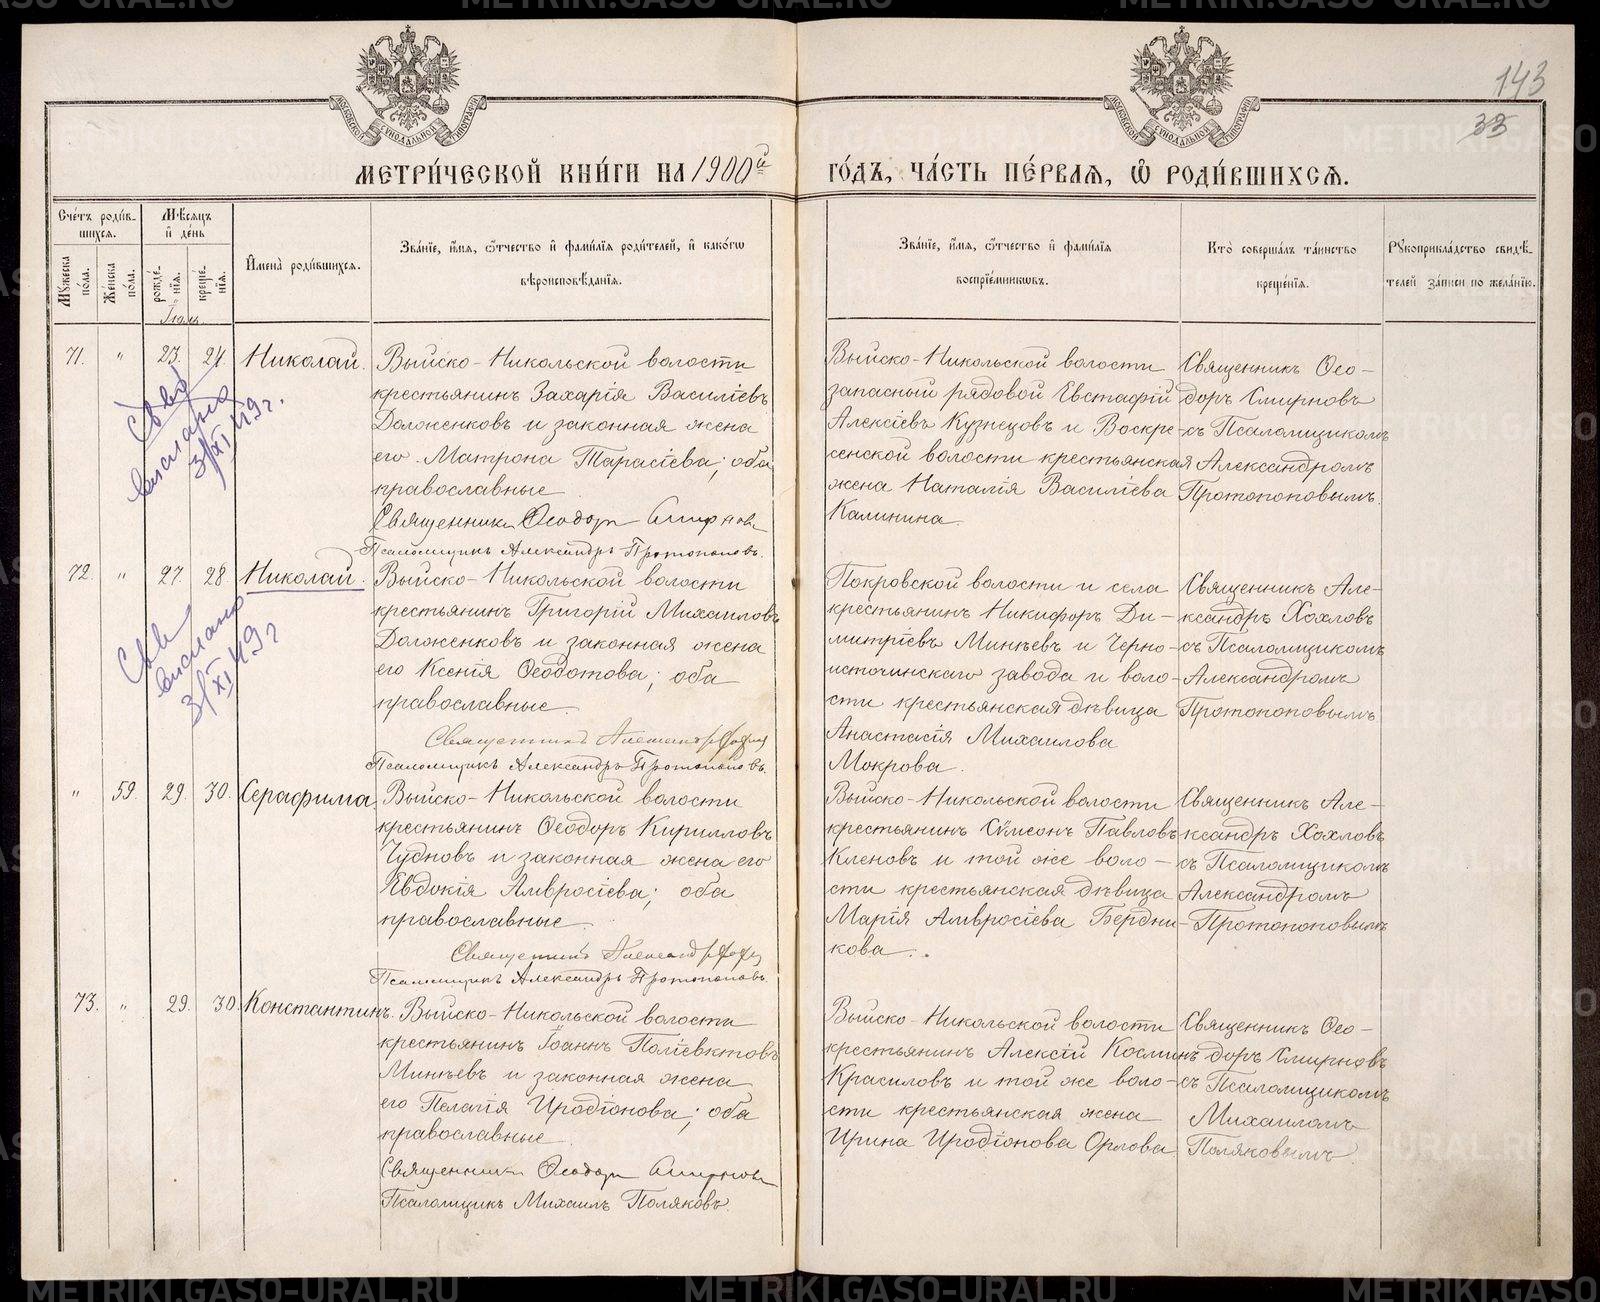 METRIKI.GASO-URAL.RU
143
33
МОСКОВСКОЙ СѴНОДАЛЬНОЙ ТИПОГРАФІИ
МОСКОВСКОЙ СѴНОДАЛЬНОЙ ТИПОГРАФІИ
МЕТРИ́ЧЕСКОЙ КНИ́ГИ НА 1900й
ГО́ДЪ, ЧА́СТЬ ПЕ́РВАЯ, Ѿ РОДИ́ВШИХСЯ.
Сче́тъ роди́в-
шихся.
Мꙋ́жеска по́ла.
Же́нска по́ла.
Мѣ́сяцъ
и҆ де́нь
рожде́-
нїя.
креще́-
нїя.
Іюль.
И҆мена̀ роди́вшихся.
Зва́нїе, и҆́мя, ѻ҆́тчество и҆ фами́лїя роди́телей, и҆ како́гѡ
вѣроисповѣ́данїя.
Зва́нїе, и҆́мя, ѻ҆́тчество и҆ фами́лїя
воспрїе́мникѡвъ.
Кто̀ соверша́лъ та́инство
креще́нїя.
Рꙋкоприкла́дство свидѣ́-
телей за́писи по жела́нїю.
71. " 23. 24. Николай.
Выйско-Никольской волости
крестьянинъ Захарія Василіевъ
Долженковъ и законная жена
его Матрона Тарасіева; оба
православные.
Священникъ Ѳеодоръ Смирновъ
Псаломщикъ Александръ Протопоповъ.
Выйско-Никольской волости
запасный рядовой Евстафій
Алексіевъ Кузнецовъ и Воскре-
сенской волости крестьянская
жена Наталія Василіева
Калинина.
Священникъ Ѳео-
доръ Смирновъ
съ Псаломщикомъ
Александромъ
Протопоповымъ.
выслано
3/XI 49 г.
72. " 27. 28. Николай.
Выйско-Никольской волости
крестьянинъ Григорій Михаиловъ
Долженковъ и законная жена
его Ксенія Ѳеодотова; оба
православные.
Священникъ Александръ Хохловъ
Псаломщикъ Александръ Протопоповъ.
Покровской волости и села
крестьянинъ Никифоръ Ди-
митріевъ Минѣевъ и Черно-
источинскаго завода и воло-
сти крестьянская дѣвица
Анастасія Михаилова
Мокрова.
Священникъ Але-
ксандръ Хохловъ
съ Псаломщикомъ
Александромъ
Протопоповымъ
выслано
3/XI 49 г
" 59. 29. 30. Серафима
Выйско-Никольской волости
крестьянинъ Ѳеодоръ Кирилловъ
Чудновъ и законная жена его
Евдокія Амвросіева; оба
православные.
Священникъ Александръ Хохловъ
Псаломщикъ Александръ Протопоповъ.
Выйско-Никольской волости
крестьянинъ Сѵмеонъ Павловъ
Кленовъ и той же воло-
сти крестьянская дѣвица
Марія Амвросіева Бердни-
кова.
Священникъ Але-
ксандръ Хохловъ
съ Псаломщикомъ
Александромъ
Протопоповымъ
73. " 29. 30. Константинъ.
Выйско-Никольской волости
крестьянинъ Іоаннъ Поліевктовъ
Минѣевъ и законная жена
его Пелагія Иродіонова; оба
православные.
Священникъ Ѳеодоръ Смирновъ
Псаломщикъ Михаилъ Поляковъ.
Выйско-Никольской волости
крестьянинъ Алексій Косминъ
Красиловъ и той же воло-
сти крестьянская жена
Ирина Иродіонова Орлова
Священникъ Ѳео-
доръ Смирновъ
съ Псаломщикомъ
Михаиломъ
Поляковымъ.
METRIKI.GASO-URAL.RU